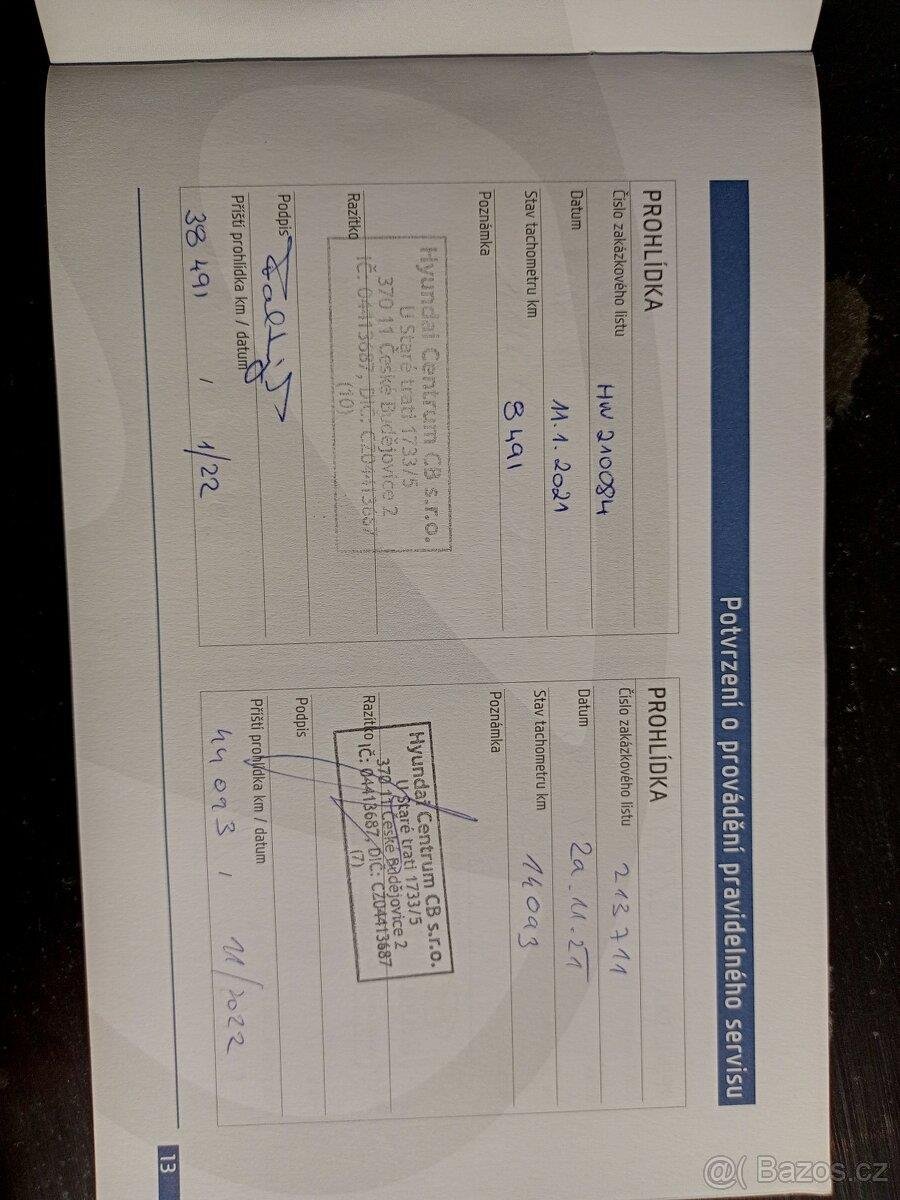 Potvrzení o provádění pravidelného servisu
PROHLÍDKA
Číslo zakázkového listu HW 210084
Datum 11.1.2021
Stav tachometru km 8 491
Poznámka
Razítko
Hyundai Centrum CB s.r.o.
U Staré trati 1733/5
370 11 České Budějovice 2
IČ: 04413687, DIČ: CZ04413687
(10)
Podpis
Příští prohlídka km / datum
38 491 / 1/22
PROHLÍDKA
Číslo zakázkového listu 213711
Datum 29.11.21
Stav tachometru km 14093
Poznámka
Razítko
Hyundai Centrum CB s.r.o.
U Staré trati 1733/5
370 11 České Budějovice 2
IČ: 04413687, DIČ: CZ04413687
(7)
Podpis
Příští prohlídka km / datum
44093 / 11/2022
13
@( Bazos.cz